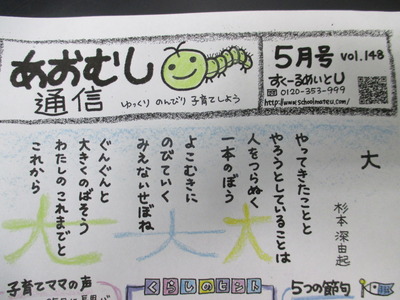 あおむし
通信
ゆっくり のんびり 子育てしよう
5月号 vol.148
すくーるめいとU
0120-353-999
http://www.schoolmateu.com/
大
杉本 深由起
やってきたことと
やろうとしていることは
人をつらぬく
一本のぼう
よこむきに
のびていく
みえないせぼね
ぐんぐんと
大きくのばそう
わたしの これまでと
これから
大
大
大
子育てママの声
くらしのヒント
5つの節句